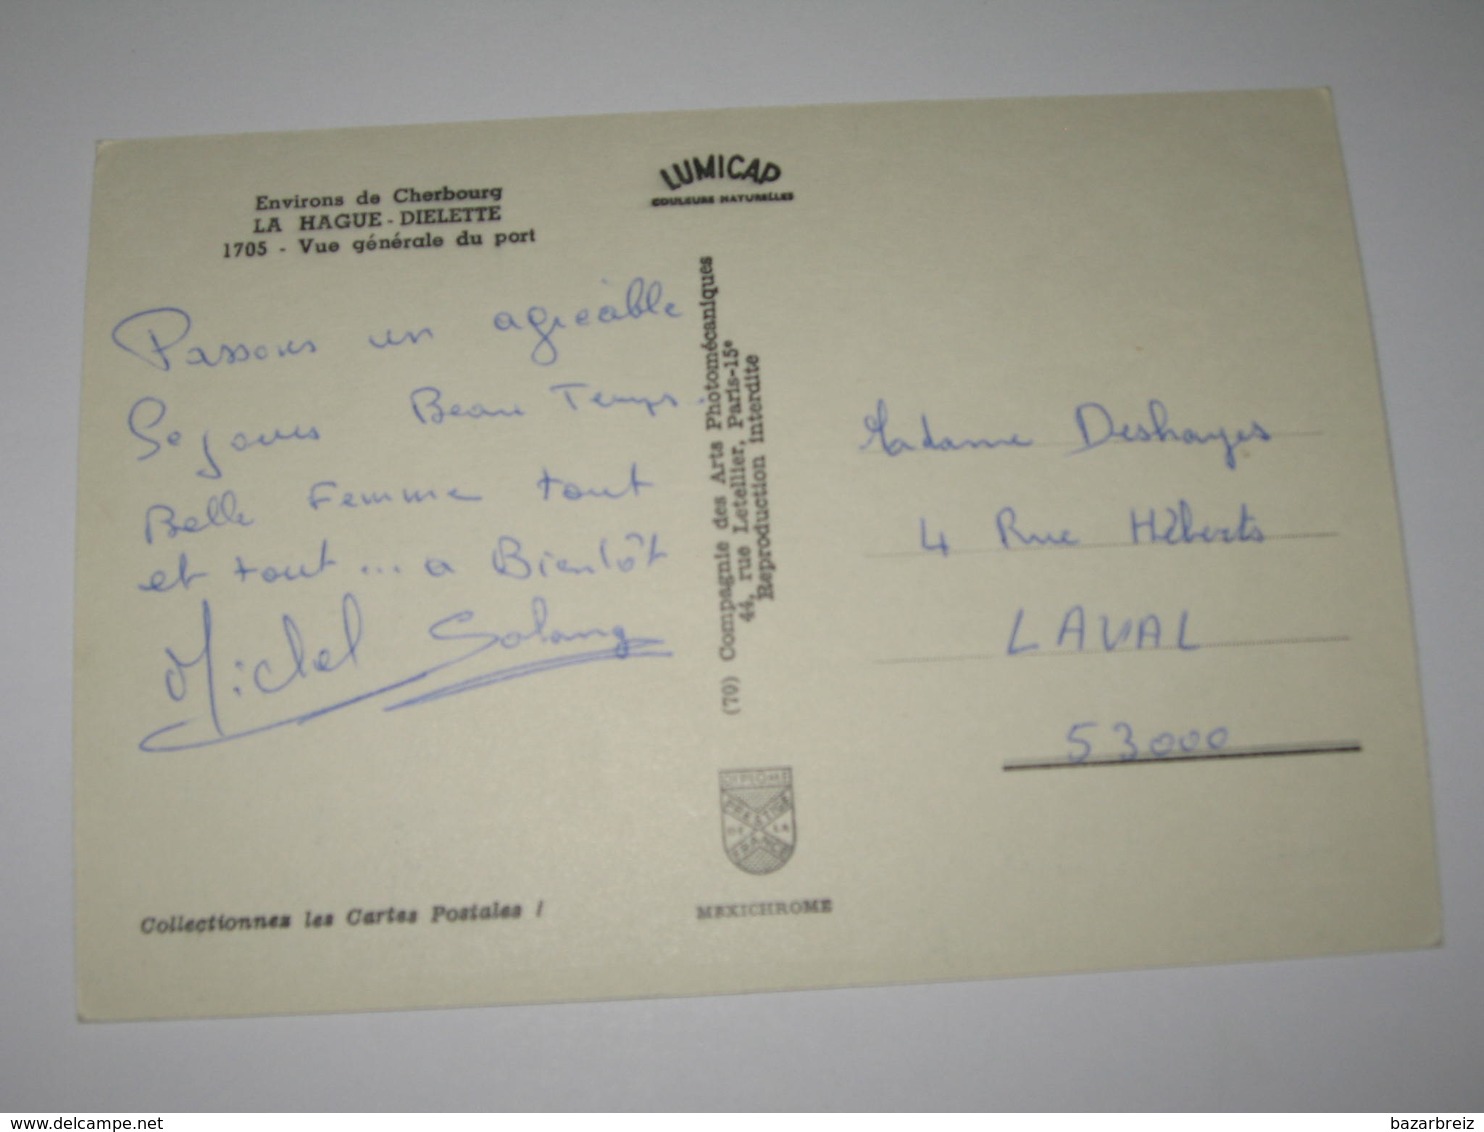 Environs de Cherbourg
LA HAGUE - DIELETTE
1705 - Vue générale du port
LUMICAP
COULEURS NATURELLES
Passons un agréable
Sejours Beau Temps.
Belle Femme tout
et tout ... a Bientôt
Michel Solang
(70) Compagnie des Arts Photomécaniques
44, rue Letellier, Paris-15e
Reproduction interdite
Madame Deshayes
4 Rue Héberts
LAVAL
53000
DIPLOME
PRESTIGE
DE LA
FRANCE
MEXICHROME
Collectionnez les Cartes Postales !
www.delcampe.net
bazarbreiz